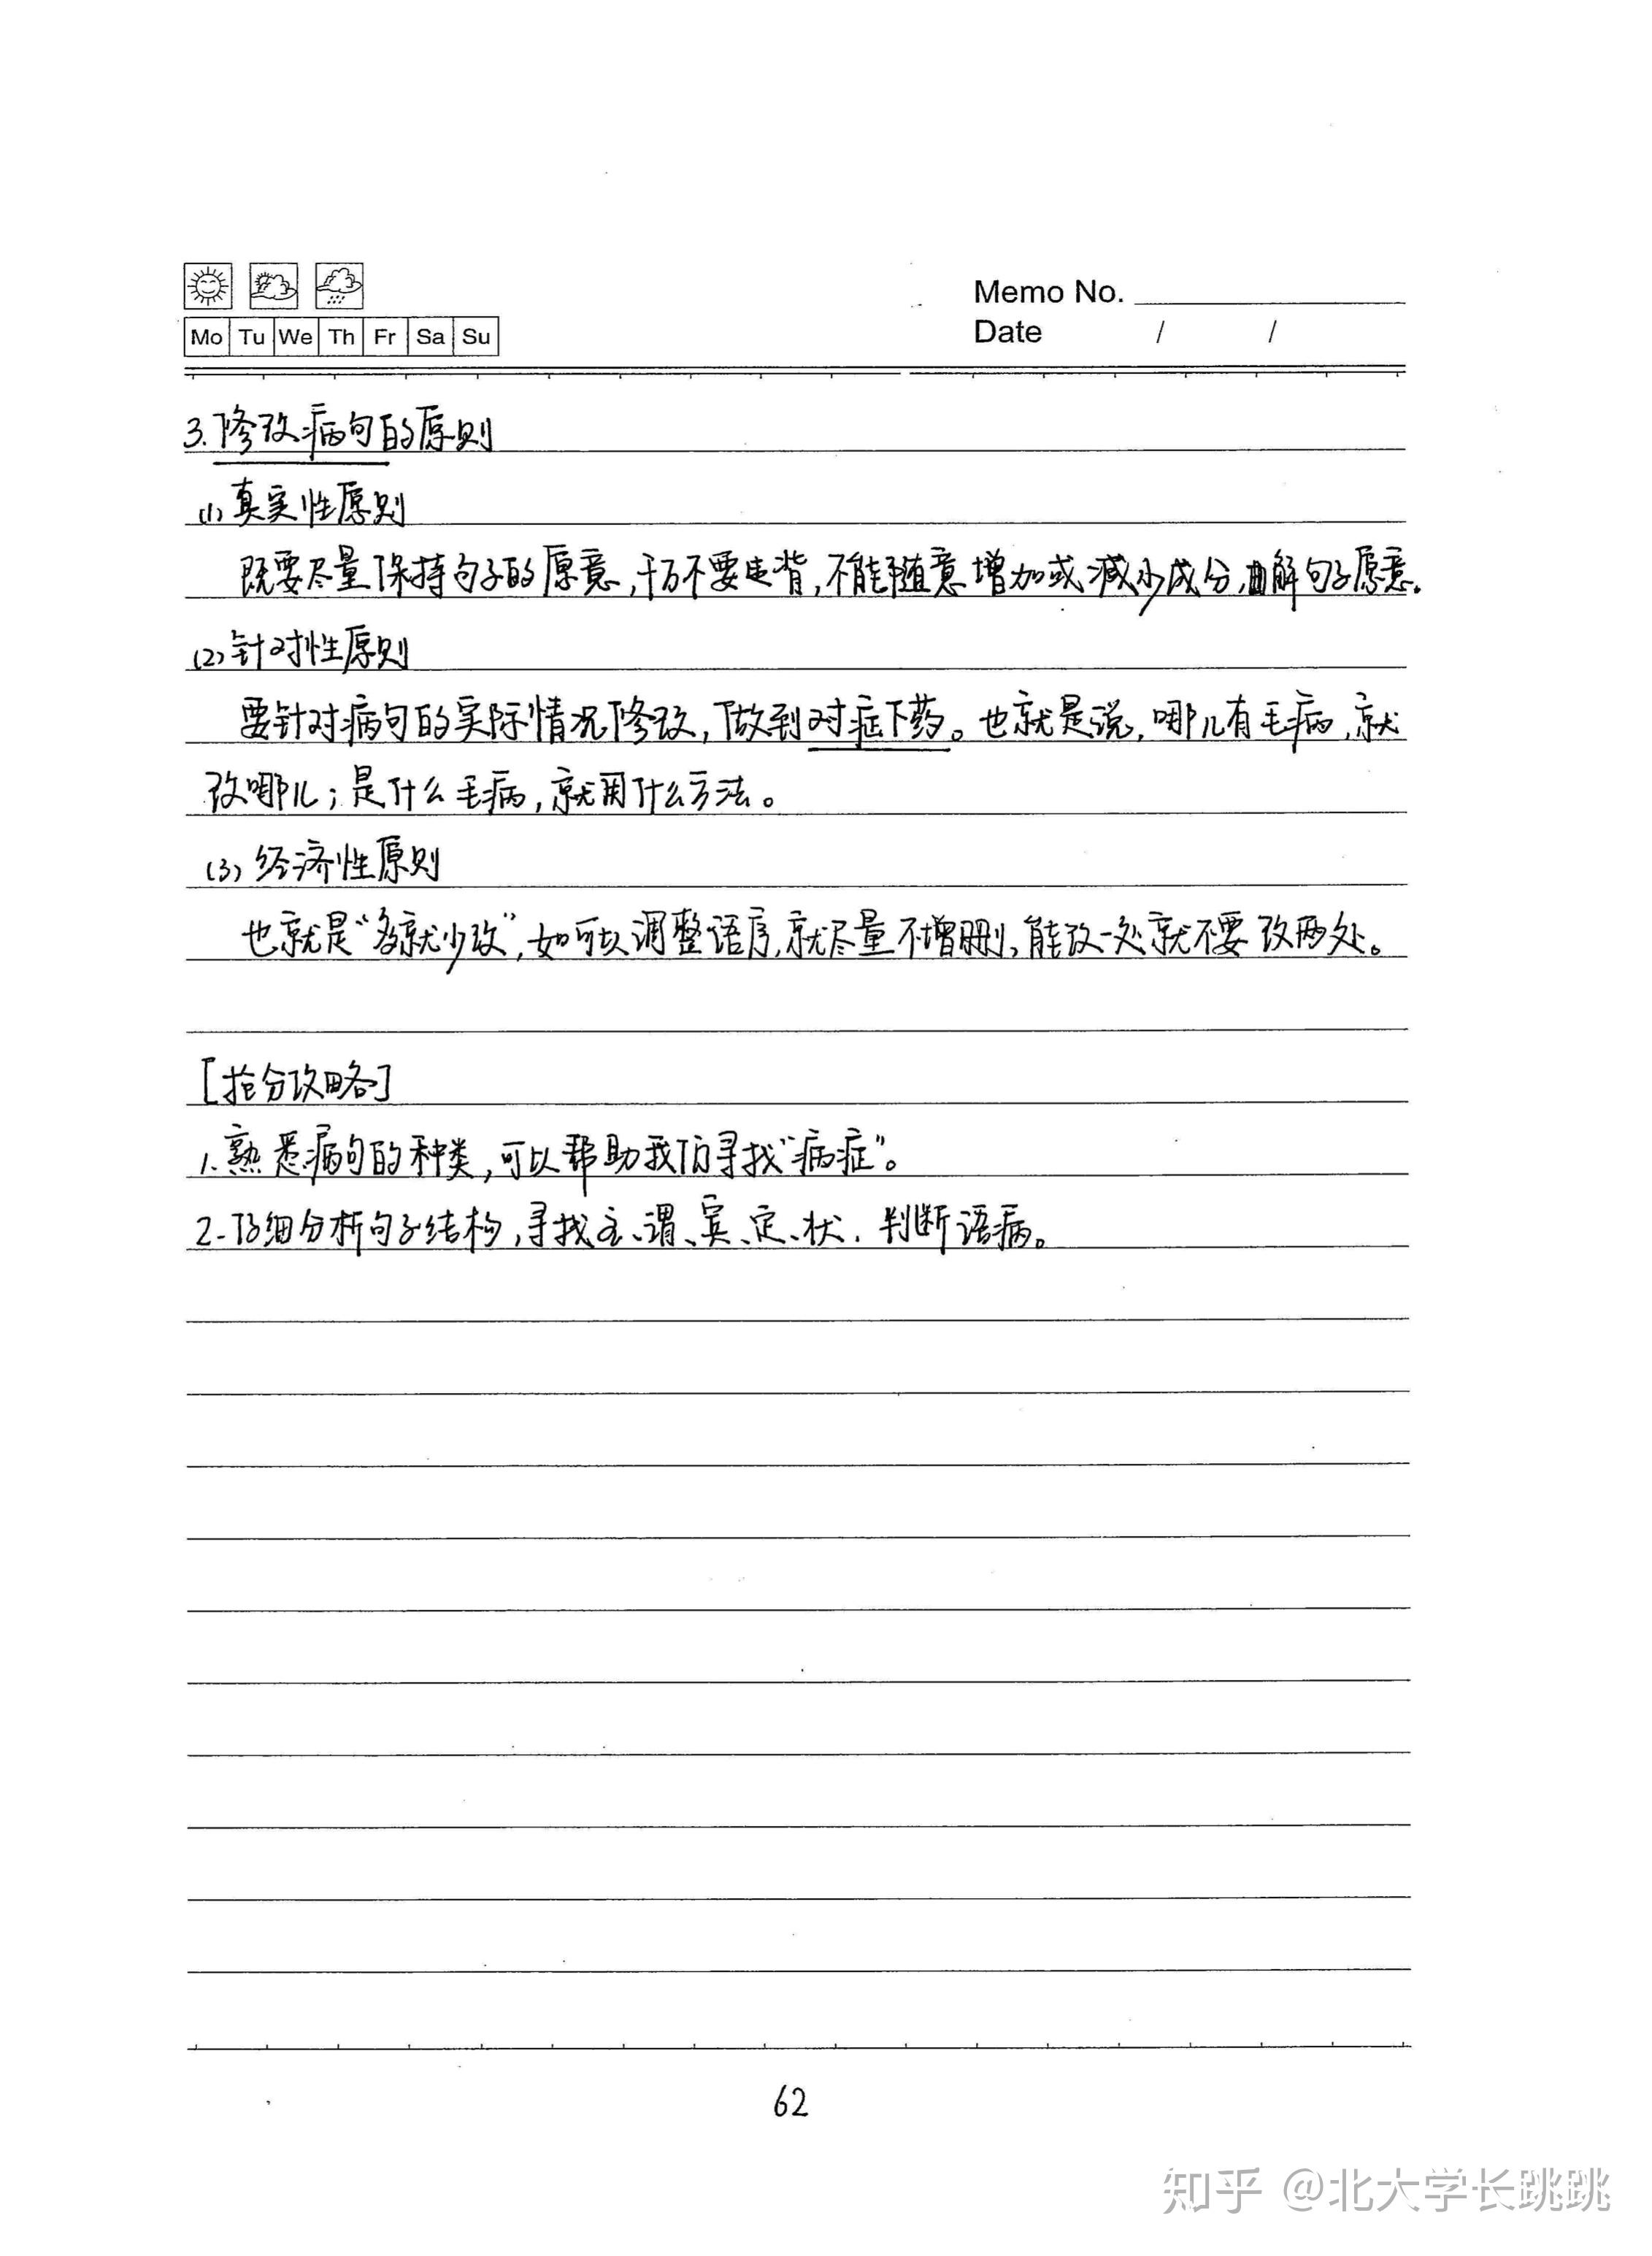 Memo No.
Mo Tu We Th Fr Sa Su
Date / /
3.修改病句的原则
(1)真实性原则
既要尽量保持句子的愿意,千万不要走背,不能随意增加或减少成分,曲解句子愿意。
(2)针对性原则
要针对病句的实际情况修改,做到对症下药。也就是说,哪儿有毛病,就
改哪儿;是什么毛病,就用什么方法。
(3)经济性原则
也就是“多就少改”,如可以调整语序,就尽量不增删,能改一处就不要改两处。
[抢分攻略]
1.熟悉病句的种类,可以帮助我们寻找“病症”。
2.仔细分析句子结构,寻找主、谓、宾、定、状,判断语病。
62
知乎 @北大学长跳跳